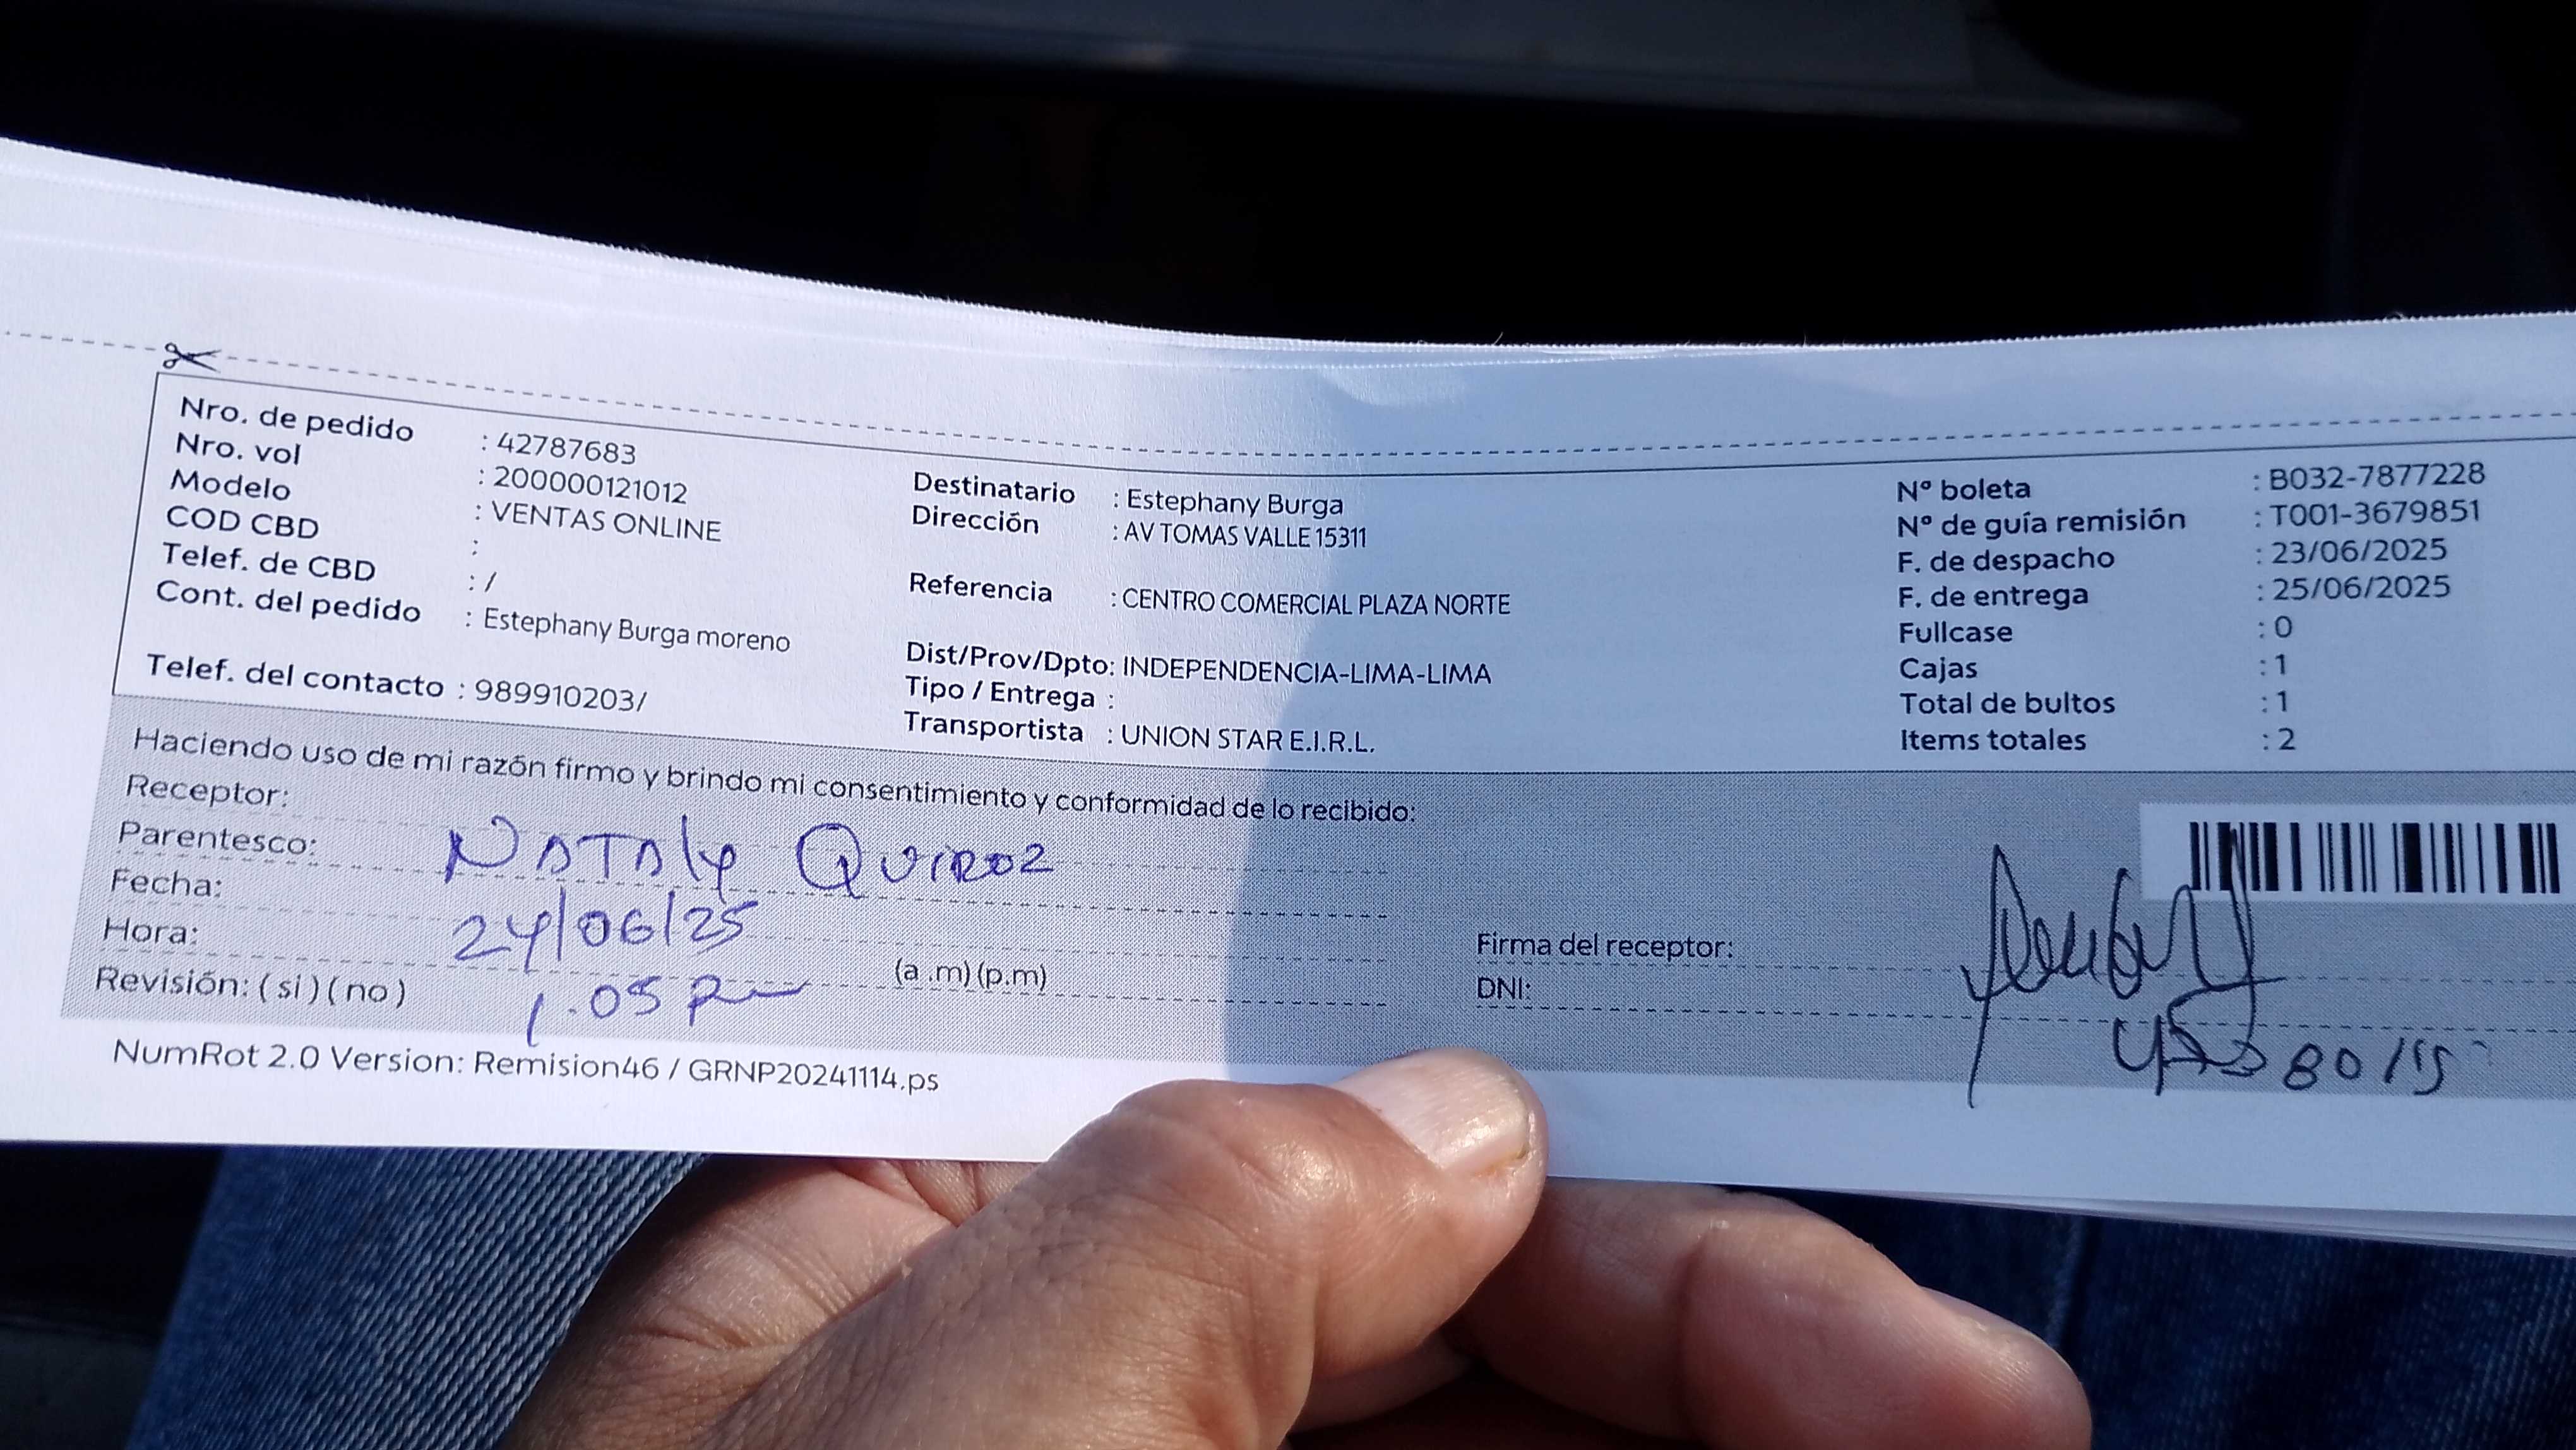 Nro. de pedido : 42787683
Nro. vol : 200000121012
Modelo : VENTAS ONLINE
COD CBD :
Telef. de CBD : /
Cont. del pedido : Estephany Burga moreno
Telef. del contacto : 989910203/
Destinatario : Estephany Burga
Dirección : AV TOMAS VALLE 15311
Referencia : CENTRO COMERCIAL PLAZA NORTE
Dist/Prov/Dpto: INDEPENDENCIA-LIMA-LIMA
Tipo / Entrega :
Transportista : UNION STAR E.I.R.L.
Nº boleta : B032-7877228
Nº de guía remisión : T001-3679851
F. de despacho : 23/06/2025
F. de entrega : 25/06/2025
Fullcase : 0
Cajas : 1
Total de bultos : 1
Items totales : 2
Haciendo uso de mi razón firmo y brindo mi consentimiento y conformidad de lo recibido:
Receptor:
Parentesco: NATALY QUIROZ
Fecha: 24/06/25
Hora: 1.05 pm (a .m) (p.m)
Revisión: ( si ) ( no )
Firma del receptor:
DNI:
NumRot 2.0 Version: Remision46 / GRNP20241114.ps